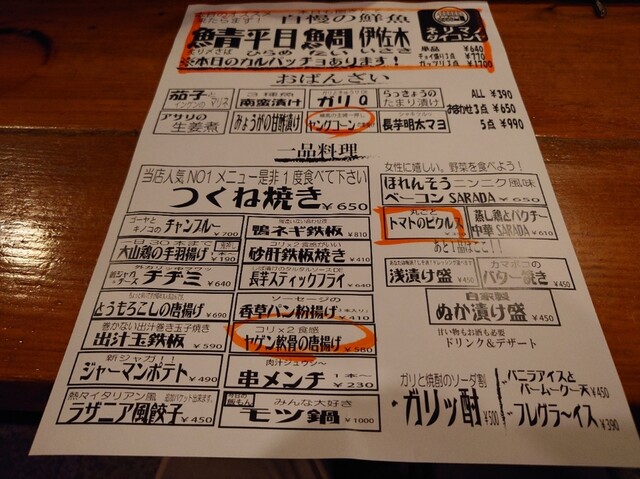 自慢の鮮魚
鯖 平目 鯛 伊佐木
ひらめ たい いさき
※本日のカルパッチョあります!
単品 ¥640
¥770
おばんざい
茄子と
インゲンのマリネ
南蛮漬け
ガリQ
らっきょうの
たまり漬け
アサリの
生姜煮
みょうがの甘酢漬け
ヤングコーン
長芋明太マヨ
ALL ¥390
3点 ¥650
5点 ¥990
一品料理
当店人気NO1メニュー是非1度食べて下さい
つくね焼き ¥650
ゴーヤと
キノコの チャンプルー ¥700
鴨ネギ鉄板 ¥810
一日30本まで
大山鶏の手羽揚げ ¥190
コリ×2食感がいい
砂肝鉄板焼き ¥410
チヂミ ¥640
長芋スティックフライ ¥640
とうもろこしの唐揚げ ¥690
ソーセージの
香草パン粉揚げ ¥410
巻かない出汁巻き玉子焼き
出汁玉鉄板 ¥590
コリ×2食感
ヤゲン軟骨の唐揚げ ¥580
新ジャガ!!
ジャーマンポテト ¥490
肉汁ジュウシ〜
串メンチ 1本〜 ¥230
熱々イタリアン風
ラザニア風餃子 ¥450
みんな大好き
モツ鍋 ¥1000
女性に嬉しい。野菜を食べよう!
ほれんそう ニンニク風味
ベーコン SARADA ¥650
丸ごと
トマトのピクルス
蒸し鶏とパクチー
中華 SARADA ¥610
あと1品はここ!!
浅漬け盛 ¥450
カマボコの
バター焼き ¥450
自家製
ぬか漬け盛 ¥450
甘い物もお酒も必要
ドリンク&デザート
ガリと焼酎のソーダ割
ガリッ酎 ¥500
バニラアイスと
バームクー天 ¥450
フレグラ〜イス ¥390